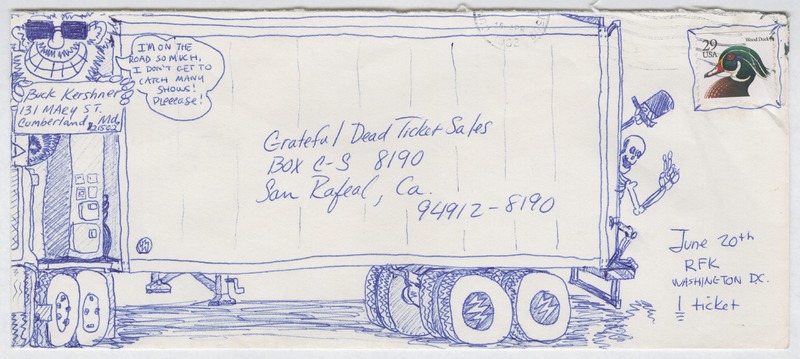 I'M ON THE
ROAD SO MUCH,
I DON'T GET TO
CATCH MANY
SHOWS!
PLEEEASE!
Buck Kershner
131 MAEy ST.
Cumberland, Md.
21502
Grateful Dead Ticket Sales
BOX C-S 8190
San Rafeal, Ca.
94912-8190
29
USA
Wood Duck
June 20th
RFK
WASHINGTON DC.
1 ticket